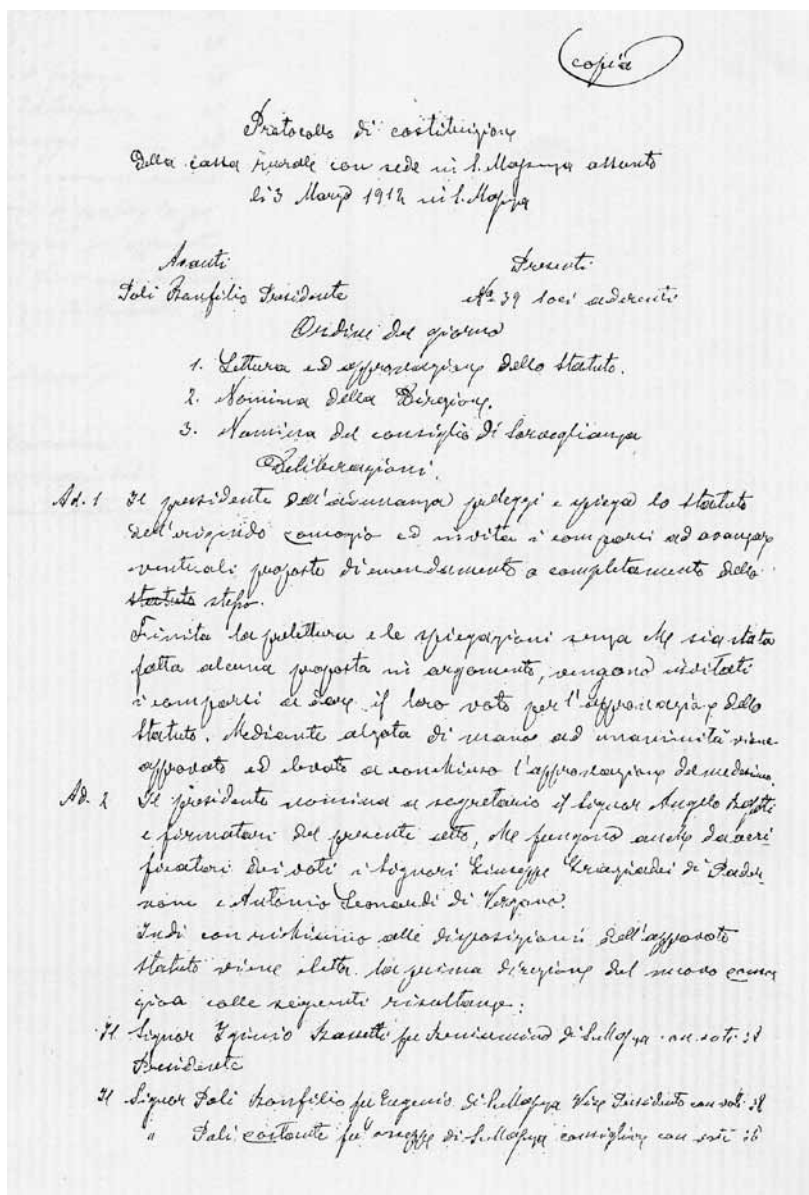 copia
Protocollo di costituzione
della cassa rurale con sede in S. Massenza assunto
li 3 Marzo 1912 in S. Massenza
Avanti
Presenti
Poli Bonfilio Presidente
No 39 soci aderenti
Ordine del giorno
1. Lettura ed approvazione dello Statuto.
2. Nomina della Direzione.
3. Nomina del consiglio di Sorveglianza
Deliberazioni.
Ad. 1 Il presidente dell'adunanza prelegge e spiega lo statuto
dell'erigendo consorzio ed invita i comparsi ad avanzare
eventuali proposte di emendamento o completamento dello
statuto stesso.
Finita la prelettura e le spiegazioni senza che sia stata
fatta alcuna proposta in argomento, vengono invitati
i comparsi a dare il loro voto per l'approvazione dello
Statuto. Mediante alzata di mano ad unanimità viene
approvato ed elevato a conchiuso l'approvazione del medesimo.
Ad. 2 Il presidente nomina a segretario il Signor Angelo
e firmatari del presente atto, che fungono anche da veri-
ficatori dei voti i Signori Giuseppe Graziadei di Pader-
none e Antonio Leonardi di Vezzano.
Indi con richiamo alle disposizioni dell'approvato
statuto viene eletta la prima direzione del nuovo
colle seguenti risultanze:
Il Signor Iginio Bassetti fu Beniamino di S. Massenza con voti
Presidente
Il Signor Poli Bonfilio fu Eugenio di S. Massenza Vice Presidente con voti 38
" Poli Costante fu di S. Massenza consigliere con voti